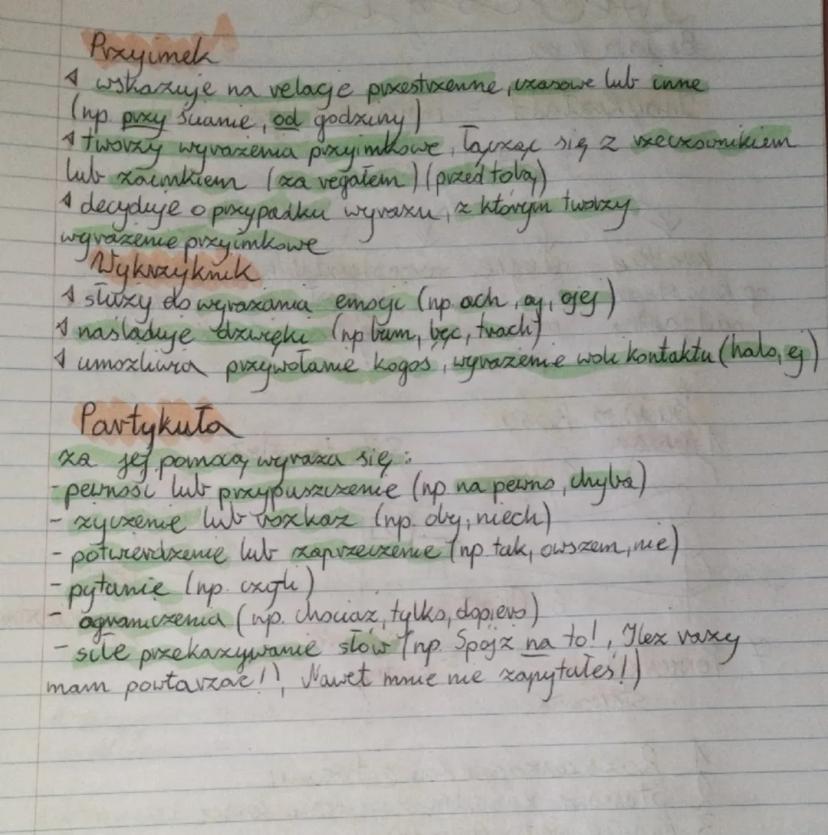 Przyimek
∢ wskazuje na relacje przestrzenne, czasowe lub inne
(np. przy ścianie, od godziny)
∢ tworzy wyrażenia przyimkowe, łącząc się z rzeczownikiem
lub zaimkiem (za regałem) (przed tobą)
∢ decyduje o przypadku wyrazu, z którym tworzy
wyrażenie przyimkowe
Wykrzyknik
∢ służy do wyrażania emocji (np. ach, oj, ojej)
∢ naśladuje dźwięki (np bum, bęc, trach)
∢ umożliwia przywołanie kogoś, wyrażenie woli kontaktu (halo, ej)
Partykuła
za jej pomocą wyraża się:
- pewność lub przypuszczenie (np na pewno, chyba)
- życzenie lub rozkaz (np. oby, niech)
- potwierdzenie lub zaprzeczenie (np tak, owszem, nie)
- pytanie (np. czyli)
- ograniczenia (np. chociaż, tylko, dopiero)
- siłę przekazywanie słów (np. Spójż na to!, Ileż razy
mam powtarzać!), Nawet mnie nie zapytałeś!)